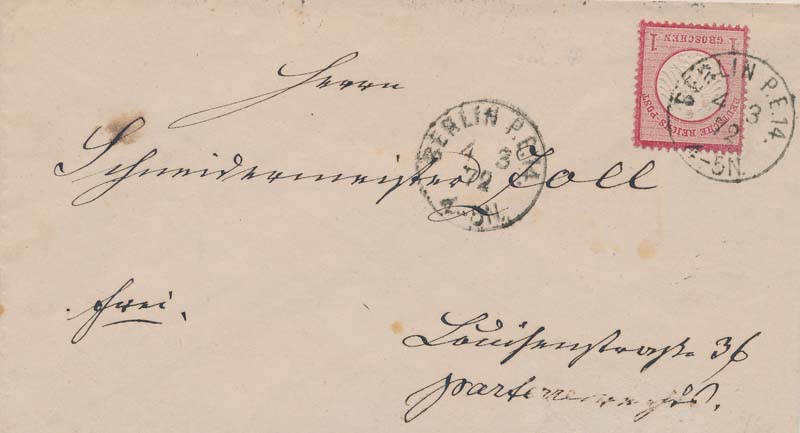 1 GROSCHEN 1
DEUTSCHE REICHS-POST
BERLIN P.E.14.
4 3
72
4-5N.
Herrn
BERLIN P.E.14.
4 3
72
4-5N.
Schneidermeister Joll
frei.
Louisenstraße 36
parterre